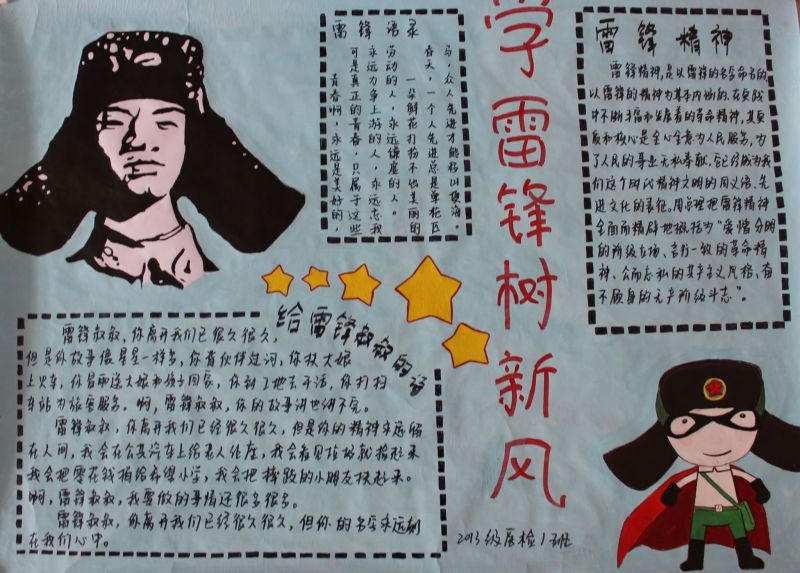 学雷锋树新风
雷锋语录
青春啊，永远是美好的，
可是真正的青春，只属于这些
永远力争上游的人，永远忘我
劳动的人，永远谦虚的人。
一朵鲜花打扮不出美丽的
春天，一个人先进总是单枪匹
马，众人先进才能移山填海。
雷锋精神
雷锋精神，是以雷锋的名字命名的
以雷锋的精神为基本内涵的，在实践
中不断丰富和发展着的革命精神，其实
质和核心是全心全意为人民服务，为
了人民的事业无私奉献。它已经成为我
们这个时代精神文明的同义语、先
进文化的表征。周总理把雷锋精神
全面而精辟地概括为“爱憎分明
的阶级立场、言行一致的革命精
神、公而忘私的共产主义风格、奋
不顾身的无产阶级斗志”。
给雷锋叔叔的话
雷锋叔叔，你离开我们已很久很久，
但是你故事像星星一样多，你背伙伴过河，你扶大娘
上火车，你冒雨送大娘和孩子回家，你到工地去干活，你打扫
车站为旅客服务。啊，雷锋叔叔，你的故事讲也讲不完。
雷锋叔叔，你离开我们已经很久很久，但是你的精神永远留
在人间，我会在公共汽车上给老人让座，我会看见垃圾就捡起来
我会把零花钱捐给希望小学，我会把摔跤的小朋友扶起来。
啊，雷锋叔叔，我要做的事情还很多很多。
雷锋叔叔，你离开我们已经很久很久，但你的名字永远刻
在我们心中。
2013级医检1班